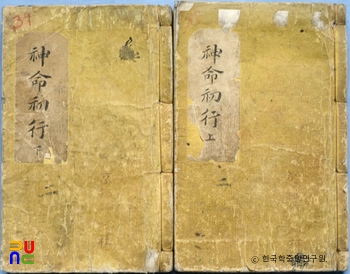 31
神命初行
下
二
神命初行
上
二
ⓒ 한국학중앙연구원